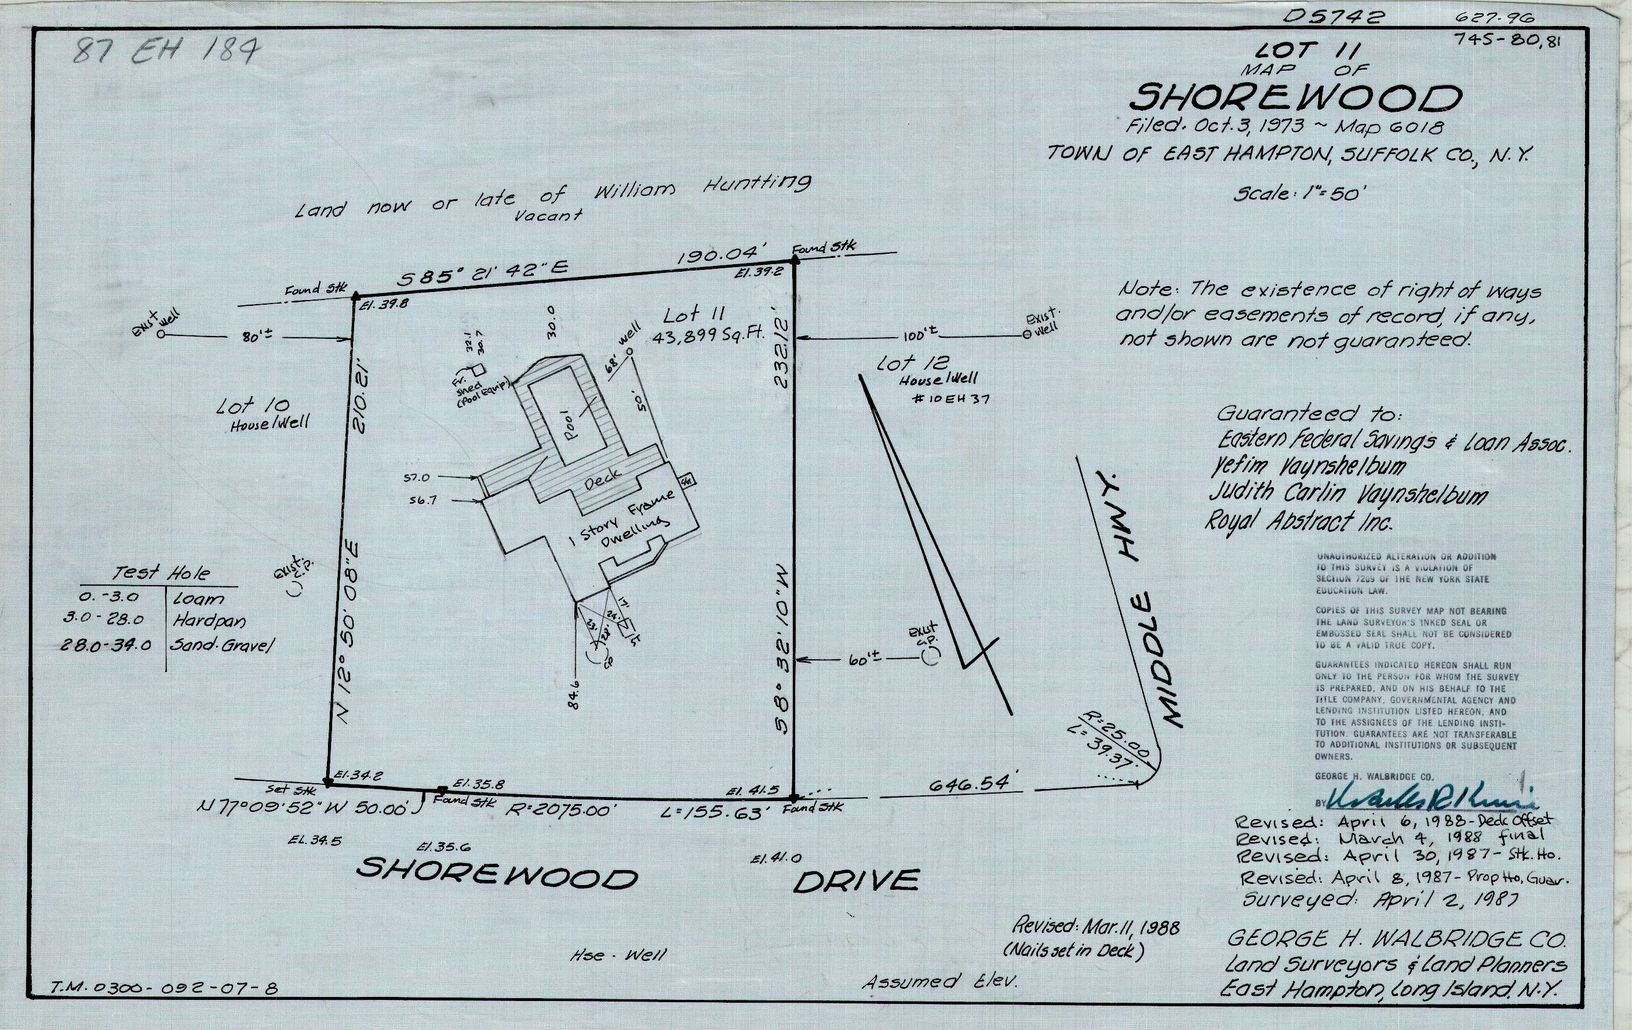 D5742
627-96
745-80,81
87 EH 184
LOT 11
MAP OF
SHOREWOOD
Filed. Oct. 3, 1973 ~ Map 6018
TOWN OF EAST HAMPTON, SUFFOLK CO., N.Y.
Scale: 1"=50'
Land now or late of William Huntting
Vacant
Found Stk
S85° 21' 42"E
190.04'
Found Stk
El. 39.8
El. 39.2
Exist Well
80'±
Lot 10
House/Well
210.21'
N 12° 50' 08"E
32.1
30.7
Fr. Shed
(Pool Equip)
30.0
Lot 11
43,899 Sq.Ft.
Well
68'
50'
Pool
Deck
57.0
56.7
1 Story Frame
Dwelling
17'
84.6
232.12'
S8° 32' 10"W
100'±
Exist. Well
Lot 12
House/Well
#10EH37
Exist C.P.
60'±
Exist. C.P.
Test Hole
0.-3.0 Loam
3.0-28.0 Hardpan
28.0-34.0 Sand-Gravel
MIDDLE HWY.
R=25.00
L=39.37'
646.54'
El. 34.2
Set Stk
El. 35.8
Found Stk
El. 41.5
Found Stk
N77°09'52"W 50.00'
R=2075.00'
L=155.63'
El. 34.5
El. 35.6
El. 41.0
SHOREWOOD DRIVE
Hse. Well
Assumed Elev.
T.M. 0300-092-07-8
Note: The existence of right of ways
and/or easements of record, if any,
not shown are not guaranteed.
Guaranteed to:
Eastern Federal Savings & Loan Assoc.
Yefim Vaynshelbum
Judith Carlin Vaynshelbum
Royal Abstract Inc.
UNAUTHORIZED ALTERATION OR ADDITION
TO THIS SURVEY IS A VIOLATION OF
SECTION 7209 OF THE NEW YORK STATE
EDUCATION LAW.
COPIES OF THIS SURVEY MAP NOT BEARING
THE LAND SURVEYOR'S INKED SEAL OR
EMBOSSED SEAL SHALL NOT BE CONSIDERED
TO BE A VALID TRUE COPY.
GUARANTEES INDICATED HEREON SHALL RUN
ONLY TO THE PERSON FOR WHOM THE SURVEY
IS PREPARED, AND ON HIS BEHALF TO THE
TITLE COMPANY, GOVERNMENTAL AGENCY AND
LENDING INSTITUTION LISTED HEREON, AND
TO THE ASSIGNEES OF THE LENDING INSTI-
TUTION. GUARANTEES ARE NOT TRANSFERABLE
TO ADDITIONAL INSTITUTIONS OR SUBSEQUENT
OWNERS.
GEORGE H. WALBRIDGE CO.
BY
Revised: April 6, 1988-Deck Offset
Revised: March 4, 1988 final
Revised: April 30, 1987-Stk. Ho.
Revised: April 8, 1987-Prop Ho, Guar.
Surveyed: April 2, 1987
Revised: Mar. 11, 1988
(Nails set in Deck)
GEORGE H. WALBRIDGE CO.
Land Surveyors & Land Planners
East Hampton, Long Island, N.Y.